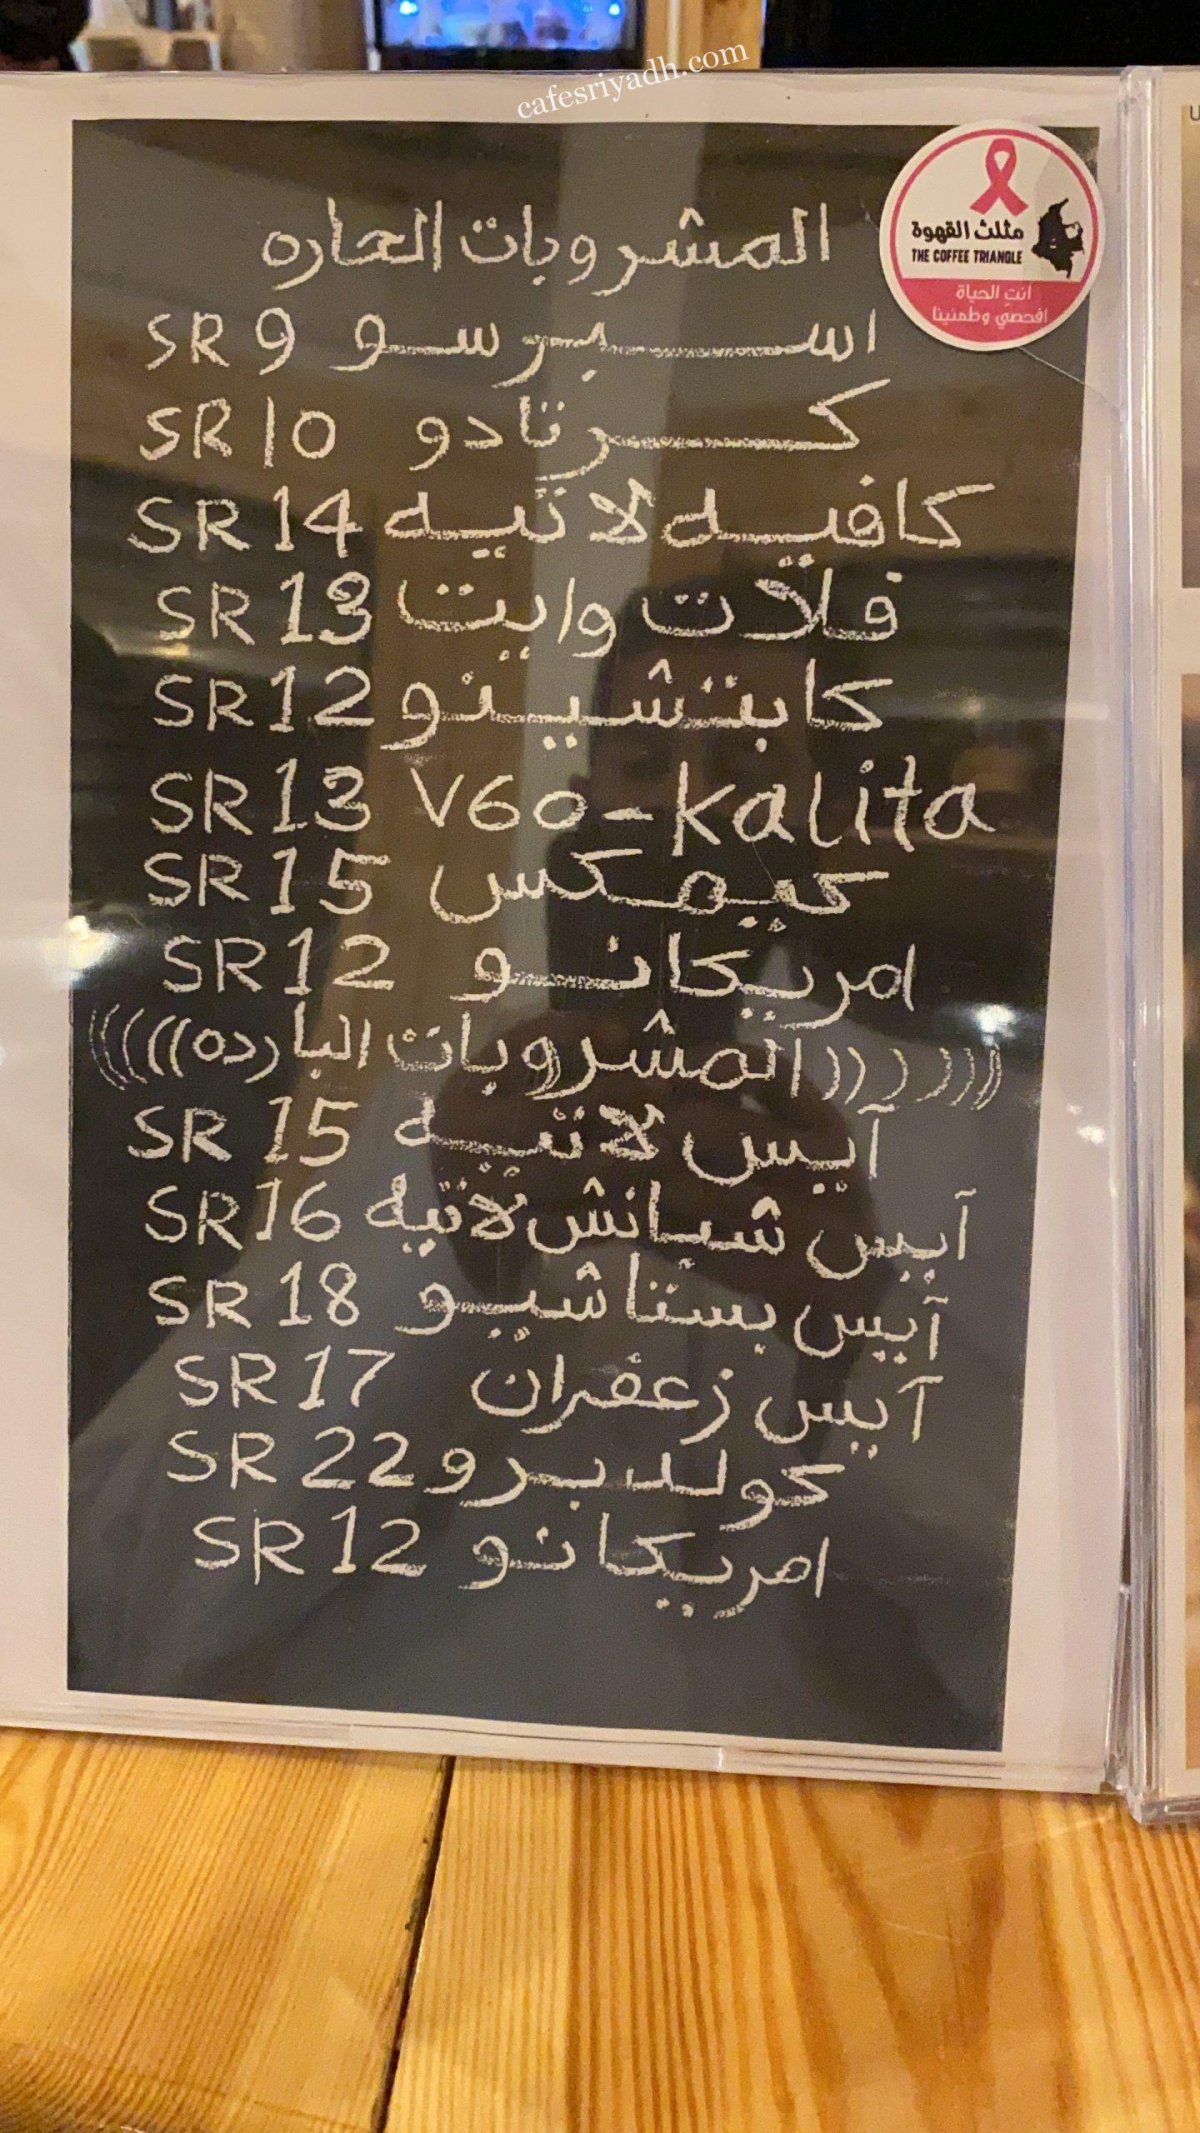 cafesriyadh.com
مثلث القهوة
THE COFFEE TRIANGLE
انتِ الحياة
افحصي وطمنينا
المشروبات الحاره
اسبرسو SR 9
كرتادو SR 10
كافيه لاتيه SR 14
فلات وايت SR 13
كابتشينو SR 12
SR 13 V60-Kalita
كيمكس SR 15
امريكانو SR 12
((((((المشروبات البارده))))))
آيس لاتيه SR 15
آيس شبانش لاتيه SR 16
آيس بستاشيو SR 18
آيس زعفران SR 17
كولد برو SR 22
امريكانو SR 12